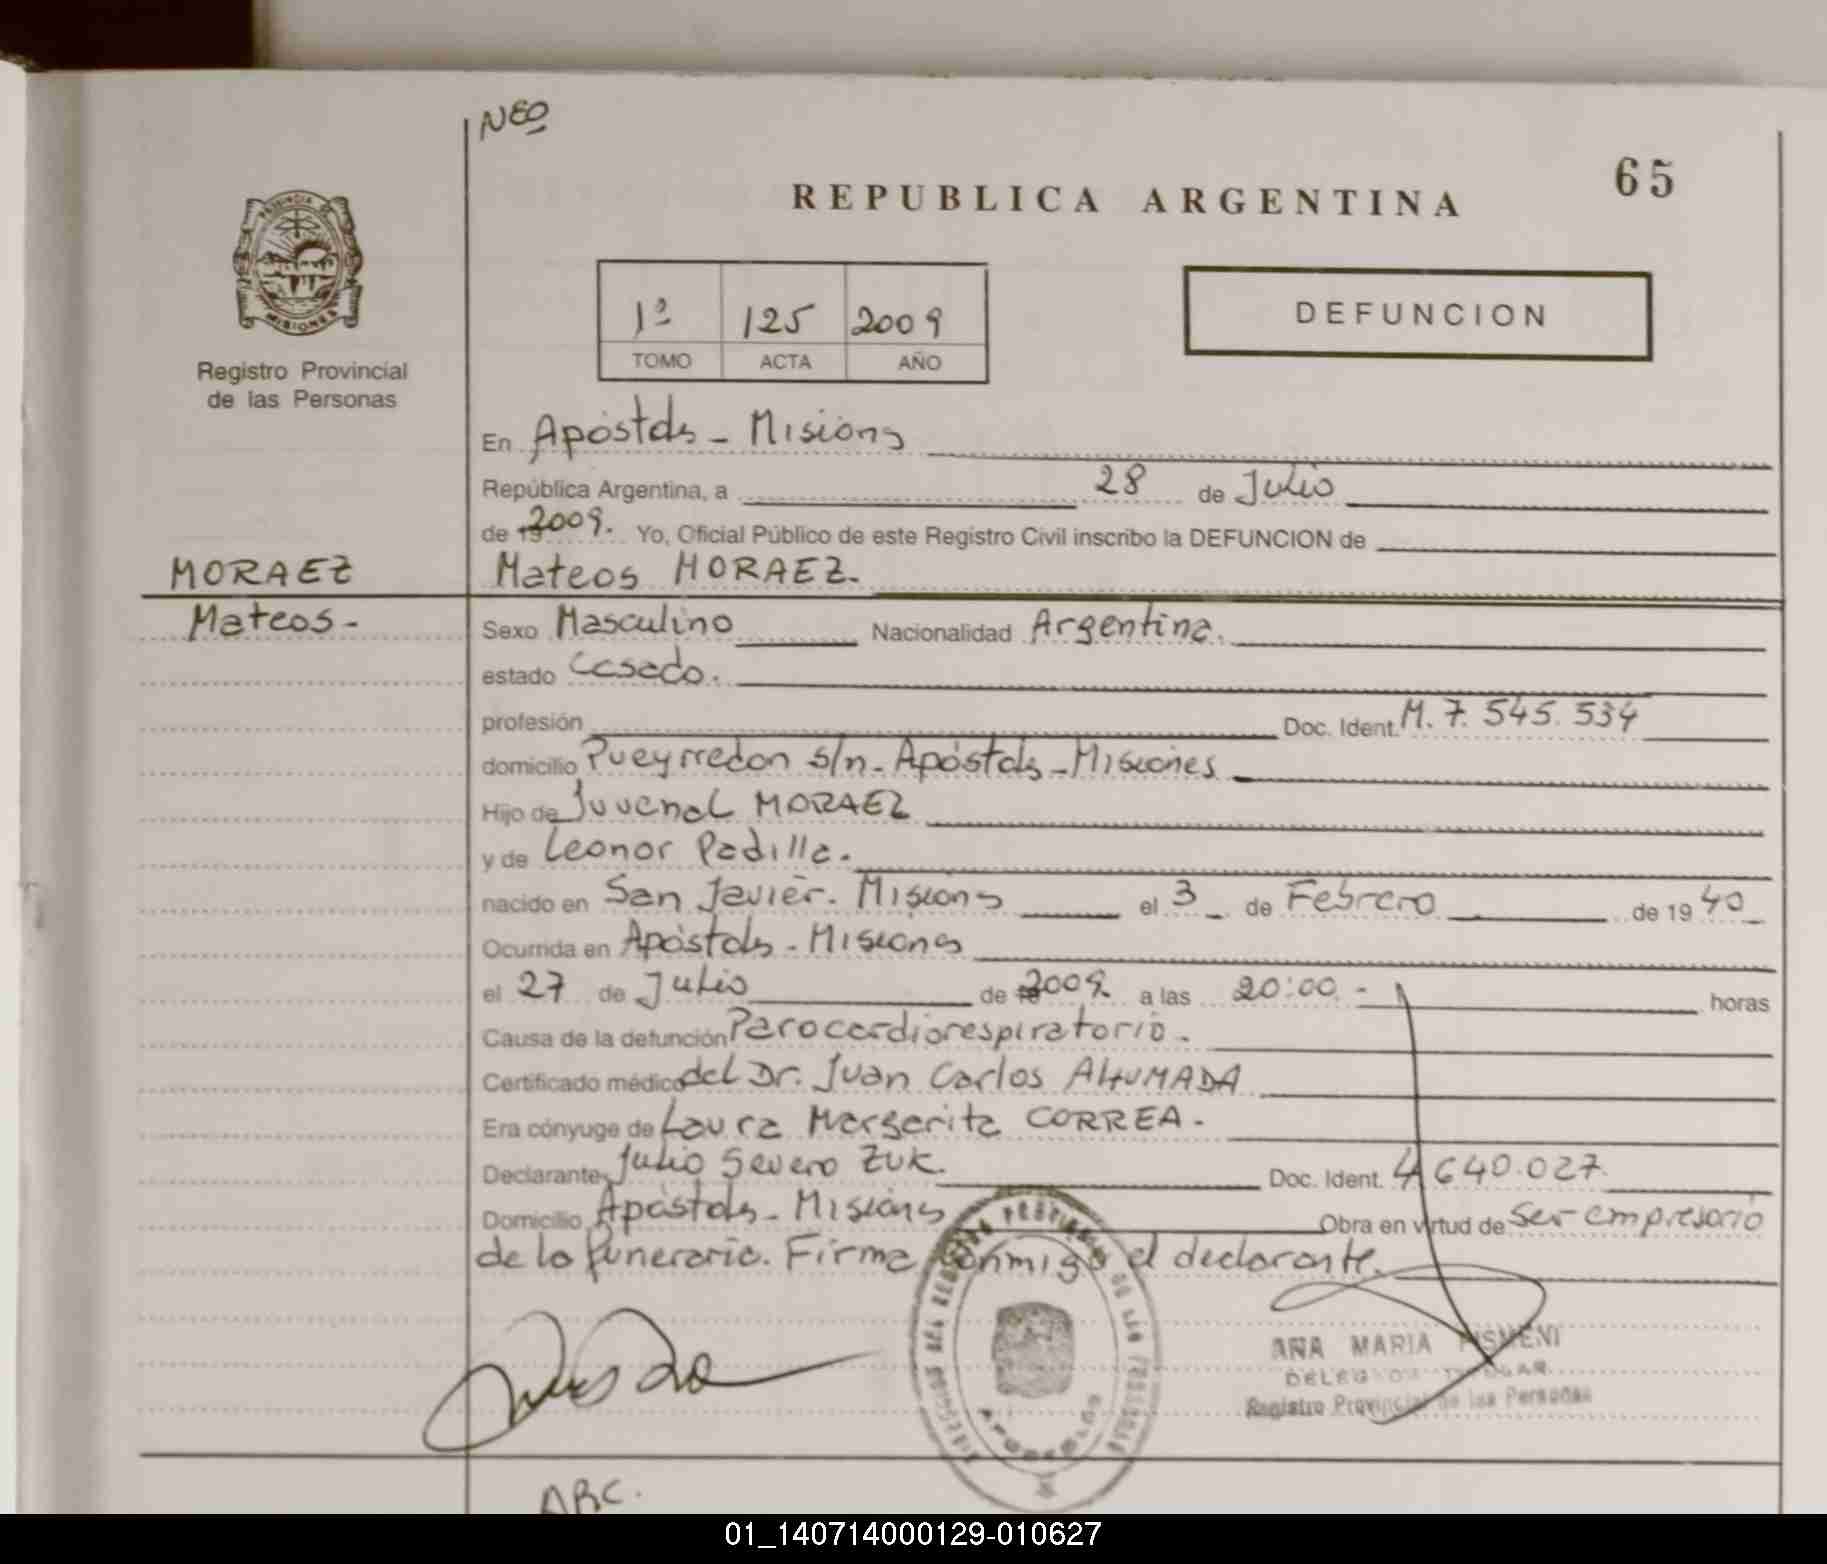 NEO
65
REPUBLICA ARGENTINA
PROVINCIA DE
MISIONES
Registro Provincial
de las Personas
1º 125 2009
TOMO ACTA AÑO
DEFUNCION
En Apóstoles - Misiones
República Argentina, a 28 de Julio
de 2009. Yo, Oficial Público de este Registro Civil inscribo la DEFUNCION de
MORAEZ Mateos MORAEZ.
Mateos - Sexo Masculino Nacionalidad Argentina.
estado Casado.
profesión Doc. Ident. M. 7.545.534
domicilio Pueyrredon s/n - Apóstoles - Misiones
Hijo de Juvenal MORAEZ
y de Leonor Padilla.
nacido en San Javier. Misiones el 3 de Febrero de 1940
Ocurrida en Apóstoles - Misiones
el 27 de Julio de 2009. a las 20:00 - horas
Causa de la defunción Parocardiorespiratorio -
Certificado médico del Dr. Juan Carlos AHUMADA
Era cónyuge de Laura Margarita CORREA -
Declarante Julio Severo ZUK. Doc. Ident. 4.640.027.
Domicilio Apóstoles - Misiones Obra en virtud de ser empresario
de la funeraria. Firma conmigo el declarante.
ANA MARIA PISMENI
DELEGADA TITULAR
Registro Provincial de las Personas
ARC.
01_140714000129-010627